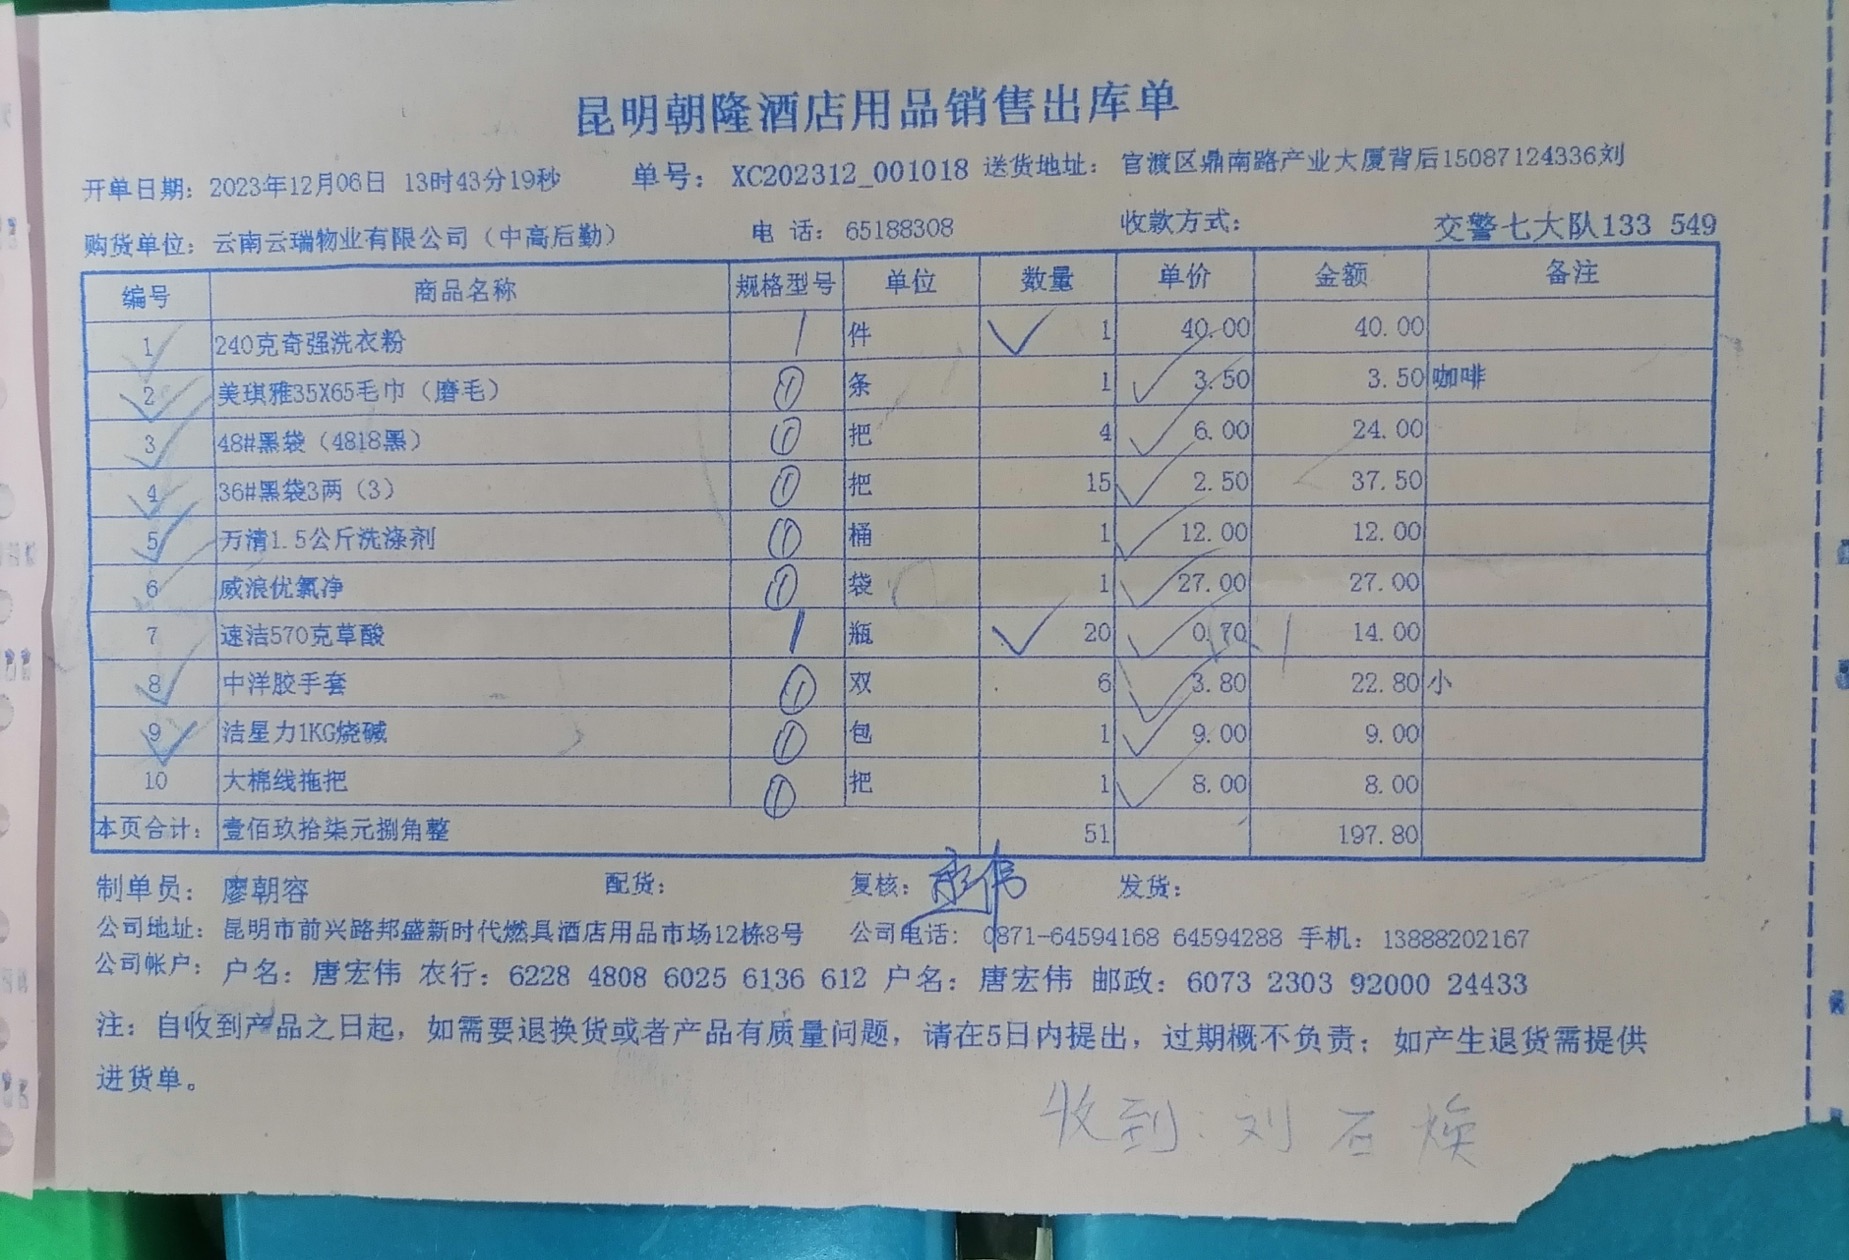 昆明朝隆酒店用品销售出库单
开单日期：2023年12月06日 13时43分19秒 单号：XC202312_001018 送货地址：官渡区鼎南路产业大厦背后15087124336刘
购货单位：云南云瑞物业有限公司（中高后勤） 电 话：65188308 收款方式： 交警七大队133 549
编号 商品名称 规格型号 单位 数量 单价 金额 备注
1 240克奇强洗衣粉 件 1 40.00 40.00
2 美琪雅35X65毛巾（磨毛） ① 条 1 3.50 3.50 咖啡
3 48#黑袋（4818黑） ① 把 4 6.00 24.00
4 36#黑袋3两（3） ① 把 15 2.50 37.50
5 万清1.5公斤洗涤剂 ① 桶 1 12.00 12.00
6 威浪优氯净 ① 袋 1 27.00 27.00
7 速洁570克草酸 瓶 20 0.70 14.00
8 中洋胶手套 ① 双 6 3.80 22.80 小
9 洁星力1KG烧碱 ① 包 1 9.00 9.00
10 大棉线拖把 ① 把 1 8.00 8.00
本页合计：壹佰玖拾柒元捌角整 51 197.80
制单员：廖朝容 配货： 复核： 发货：
公司地址：昆明市前兴路邦盛新时代燃具酒店用品市场12栋8号 公司电话：0871-64594168 64594288 手机：13888202167
公司帐户：户名：唐宏伟 农行：6228 4808 6025 6136 612 户名：唐宏伟 邮政：6073 2303 92000 24433
注：自收到产品之日起，如需要退换货或者产品有质量问题，请在5日内提出，过期概不负责；如产生退货需提供
进货单。
收到：刘石焕